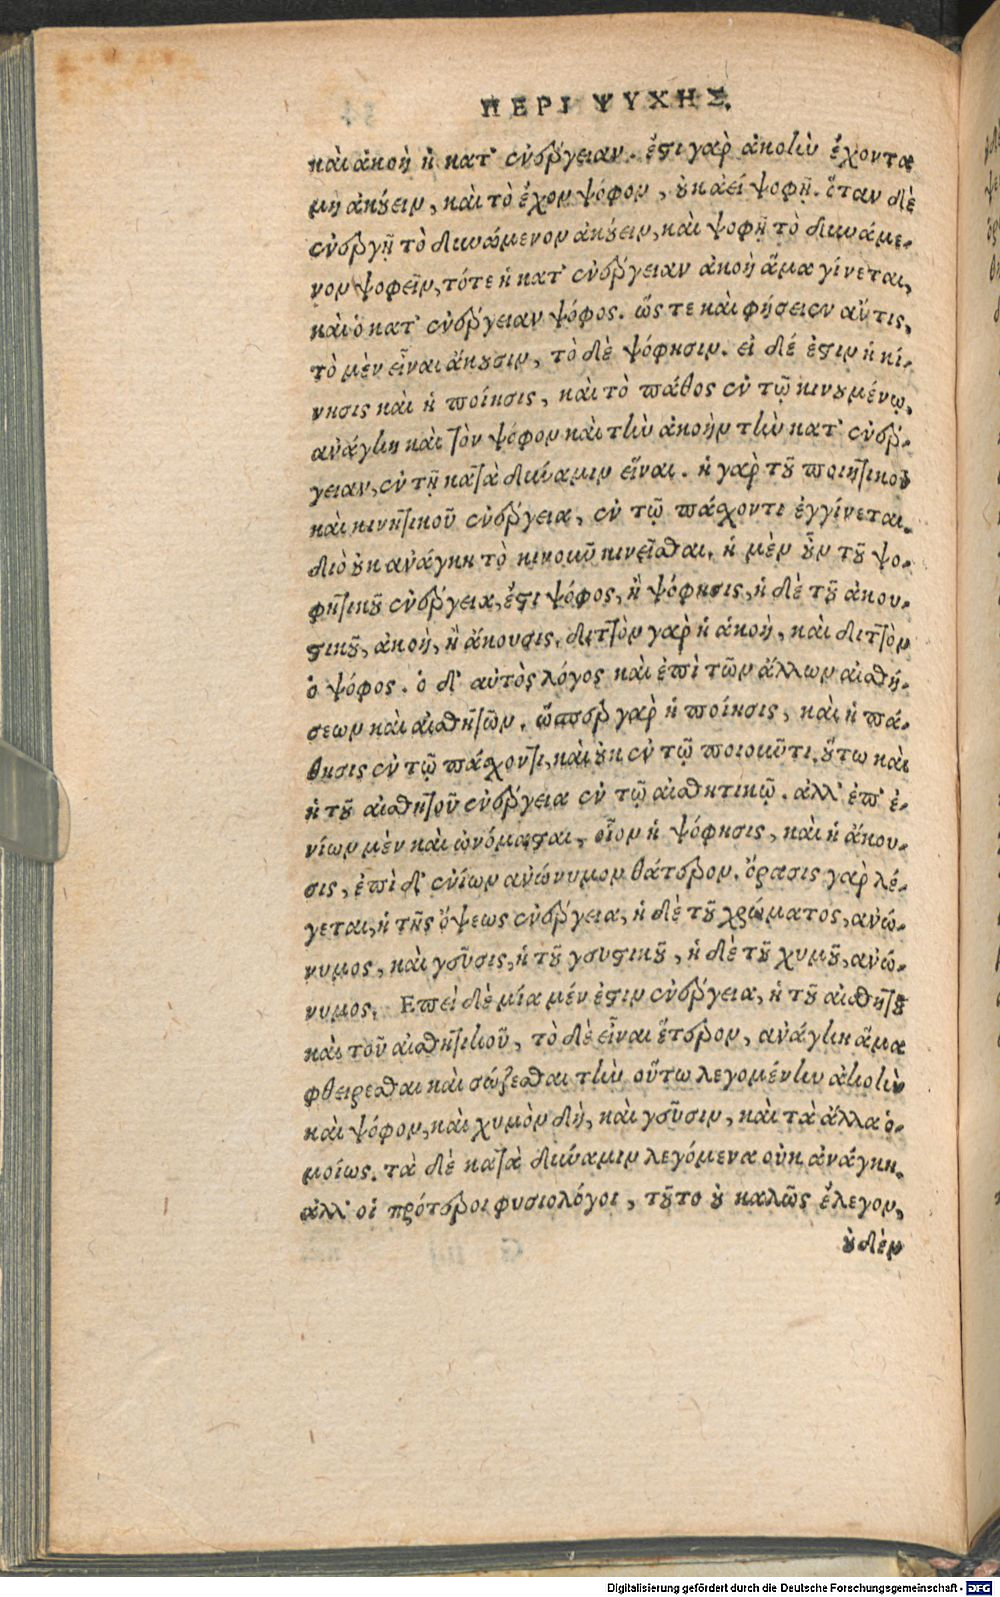 ΠΕΡΙ ΨΥΧΗΣ.
καὶ ἀκοὴ ἡ κατ' ἐνέργειαν. ἔστι γὰρ ἀκοὴν ἔχοντα
μὴ ἀκούειν, καὶ τὸ ἔχον ψόφον, οὐκ ἀεί ψοφῇ. ὅταν δὲ
ἐνεργῇ τὸ δυνάμενον ἀκούειν, καὶ ψοφῇ τὸ δυνάμε-
νον ψοφεῖν, τότε ἡ κατ' ἐνέργειαν ἀκοὴ ἅμα γίνεται,
καὶ ὁ κατ' ἐνέργειαν ψόφος. ὥς τε καὶ φήσειεν ἄν τις,
τὸ μὲν εἶναι ἄκουσιν, τὸ δὲ ψόφησιν. εἰ δέ ἐστιν ἡ κί-
νησις καὶ ἡ ποίησις, καὶ τὸ πάθος ἐν τῷ κινουμένῳ,
ἀνάγκη καὶ τὸν ψόφον καὶ τὴν ἀκοὴν τὴν κατ' ἐνέρ-
γειαν, ἐν τῇ κατὰ δύναμιν εἶναι. ἡ γὰρ τοῦ ποιητικοῦ
καὶ κινητικοῦ ἐνέργεια, ἐν τῷ πάσχοντι ἐγγίνεται.
διὸ οὐκ ἀνάγκη τὸ κινοῦν κινεῖσθαι. ἡ μὲν οὖν τοῦ ψο-
φητικοῦ ἐνέργεια, ἔστι ψόφος, ἢ ψόφησις, ἡ δὲ τοῦ ἀκου-
στικοῦ, ἀκοὴ, ἢ ἄκουσις. διττὸν γὰρ ἡ ἀκοὴ, καὶ διττὸν
ὁ ψόφος. ὁ δ' αὐτὸς λόγος καὶ ἐπὶ τῶν ἄλλων αἰσθή-
σεων καὶ αἰσθητῶν. ὥσπερ γὰρ ἡ ποίησις, καὶ ἡ πά-
θησις ἐν τῷ πάσχοντι, καὶ οὐκ ἐν τῷ ποιοῦντι. οὕτω καὶ
ἡ τοῦ αἰσθητοῦ ἐνέργεια ἐν τῷ αἰσθητικῷ. ἀλλ' ἐπ' ἐ-
νίων μὲν καὶ ὠνόμασται, οἷον ἡ ψόφησις, καὶ ἡ ἄκου-
σις, ἐπὶ δ' ἐνίων ἀνώνυμον θάτερον. ὅρασις γὰρ λέ-
γεται, ἡ τῆς ὄψεως ἐνέργεια, ἡ δὲ τοῦ χρώματος, ἀνώ-
νυμος, καὶ γεῦσις, ἡ τοῦ γευστικοῦ, ἡ δὲ τοῦ χυμοῦ, ἀνώ-
νυμος. Επεὶ δὲ μία μέν ἐστιν ἐνέργεια, ἡ τοῦ αἰσθητοῦ
καὶ τοῦ αἰσθητικοῦ, τὸ δὲ εἶναι ἕτερον, ἀνάγκη ἅμα
φθείρεσθαι καὶ σώζεσθαι τὴν οὕτω λεγομένην ἀκοὴν
καὶ ψόφον, καὶ χυμὸν δὴ, καὶ γεῦσιν, καὶ τὰ ἄλλα ὁ-
μοίως. τὰ δὲ κατὰ δύναμιν λεγόμενα οὐκ ἀνάγκη.
ἀλλ' οἱ πρότεροι φυσιολόγοι, τοῦτο οὐ καλῶς ἔλεγον,
οὐδὲν
Digitalisierung gefördert durch die Deutsche Forschungsgemeinschaft - DFG